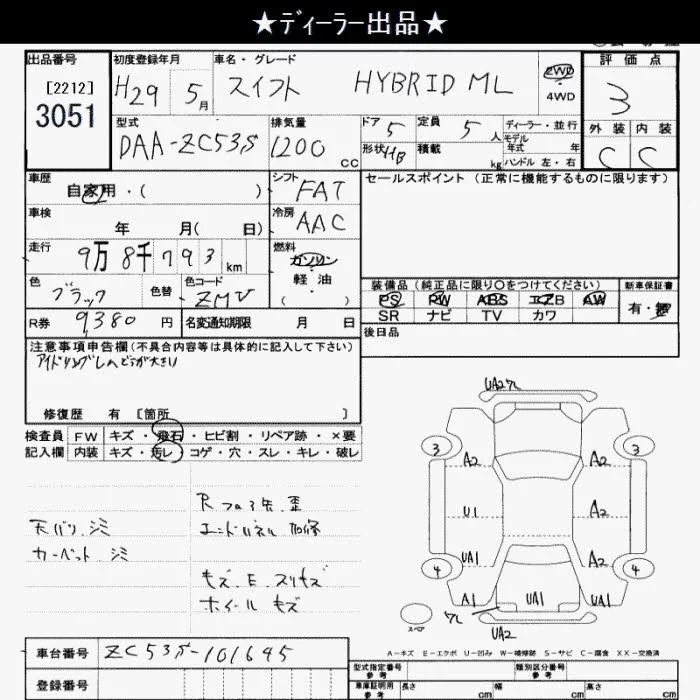 ★ディーラー出品★
出品番号
[2212]
3051
初度登録年月
H29 5月
車名・グレード
スイフト HYBRID ML
2WD
4WD
評価点
3
外装 内装
C C
型式
DAA-ZC53S
排気量
1200 cc
ドア 5
形状 HB
定員 5人
積載 kg
ディーラー・並行
モデル年式 年
ハンドル 左・右
車歴
自家用・( )
シフト
FAT
セールスポイント (正常に機能するものに限ります)
車検
年 月( 日)
冷房
AAC
走行
9万8千793km
燃料
ガソリン
軽油
( )
色
ブラック
色替
色コード
ZMV
装備品(純正品に限り○をつけてください)
PS PW ABS エアB AW
SR ナビ TV カワ
新車保証書
有・無
R券 9,380円
名変通知期限 月 日
後日品
注意事項申告欄(不具合内容等は具体的に記入して下さい)
修復歴 有 [箇所 ]
検査員
記入欄
FW キズ・飛石・ヒビ割・リペア跡・×要
内装 キズ・汚レ・コゲ・穴・スレ・キレ・破レ
天バリ シミ
カーペット シミ
Rフロア 歪
エンドパネル 加修
キズ.E.スリキズ
ホイールキズ
UA2 ワレ
3 3
A2 A2
U1 A2
UA1 A2
4 4
A1 UA1 UA1
スペア
ワレ
UA2
A-キズ E-エクボ U-凹み W-補修跡 S-サビ C-腐食 XX-交換済
車台番号 ZC53S-101645
登録番号
型式指定番号
参考
類別区分番号
参考
車庫証明用
参考
長さ cm
幅 cm
高さ cm